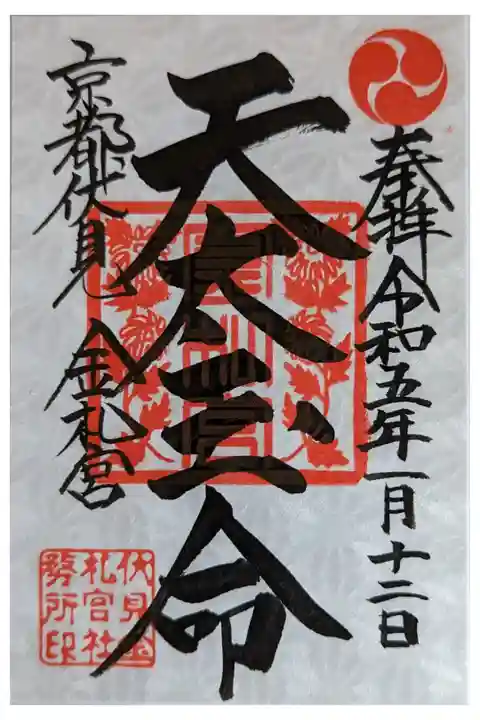 奉拝 令和五年一月十二日
天太玉命
京都伏見 金札宮
金札宮
伏見金
札宮社
務所印